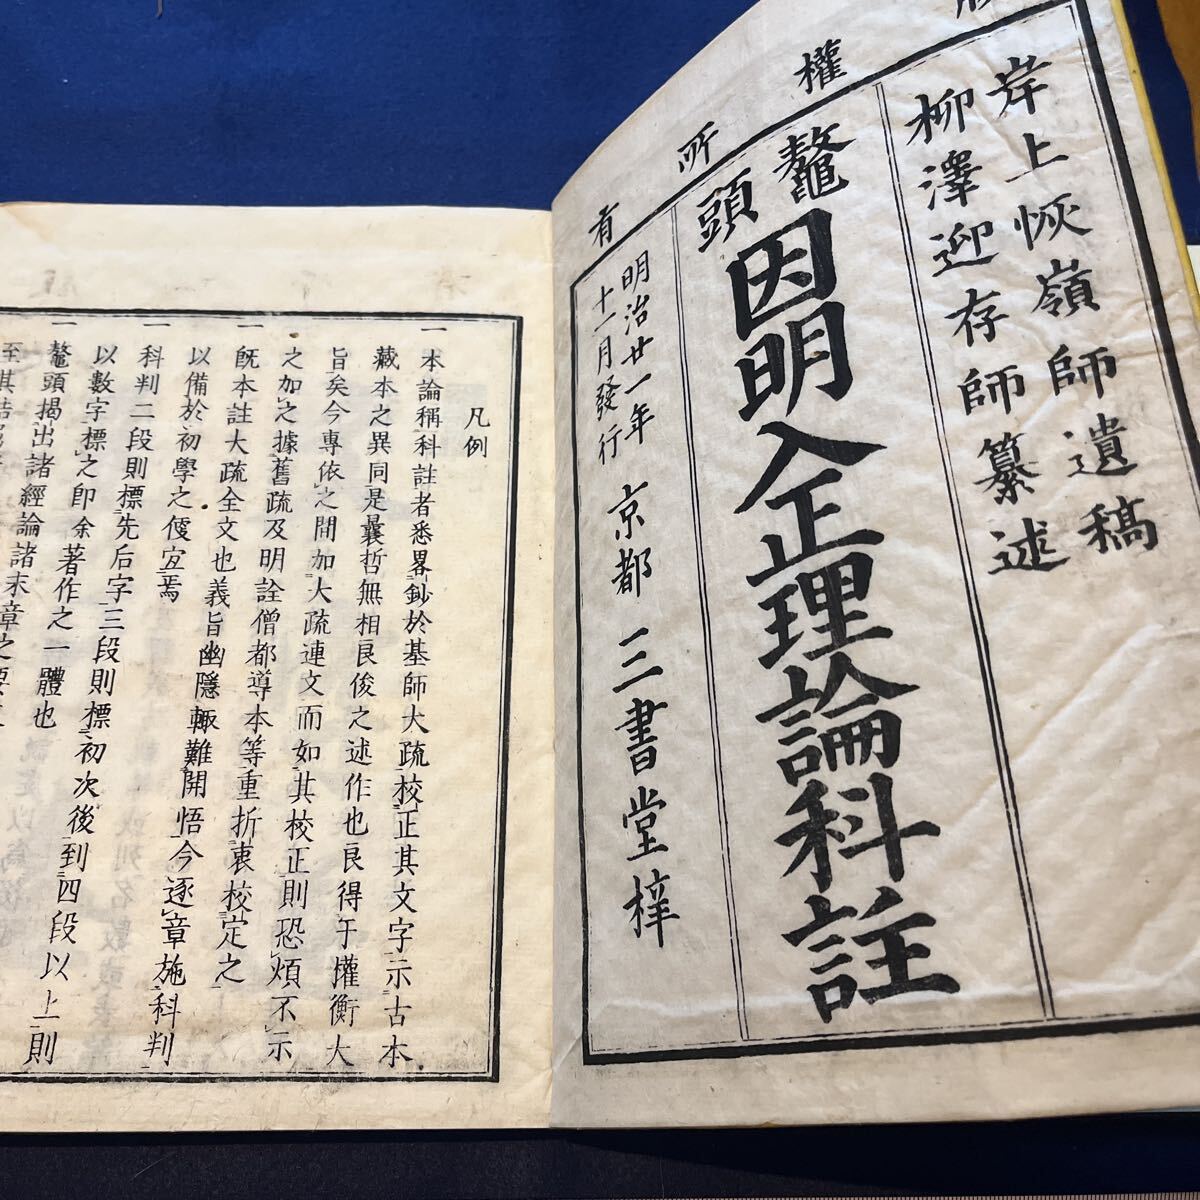 版權所有
岸上恢嶺師遺稿
柳澤迎存師纂述
鼇頭
因明入正理論科註
明治廿一年
十一月發行
京都 三書堂梓
凡例
一本論稱科註者悉畧鈔於基師大疏校正其文字示古本
藏本之異同是曩哲無相良俊之述作也良得于權衡大
旨矣今專依之間加大疏連文而如其校正則恐煩不示
之加之據舊疏及明詮僧都導本等重折衷校定之
一既本註大疏全文也義旨幽隱輙難開悟今逐章施科判
以備於初學之便宜焉
一科判二段則標先后字三段則標初次後到四段以上則
以數字標之即余著作之一體也
一鼇頭揭出諸經論諸末章之要